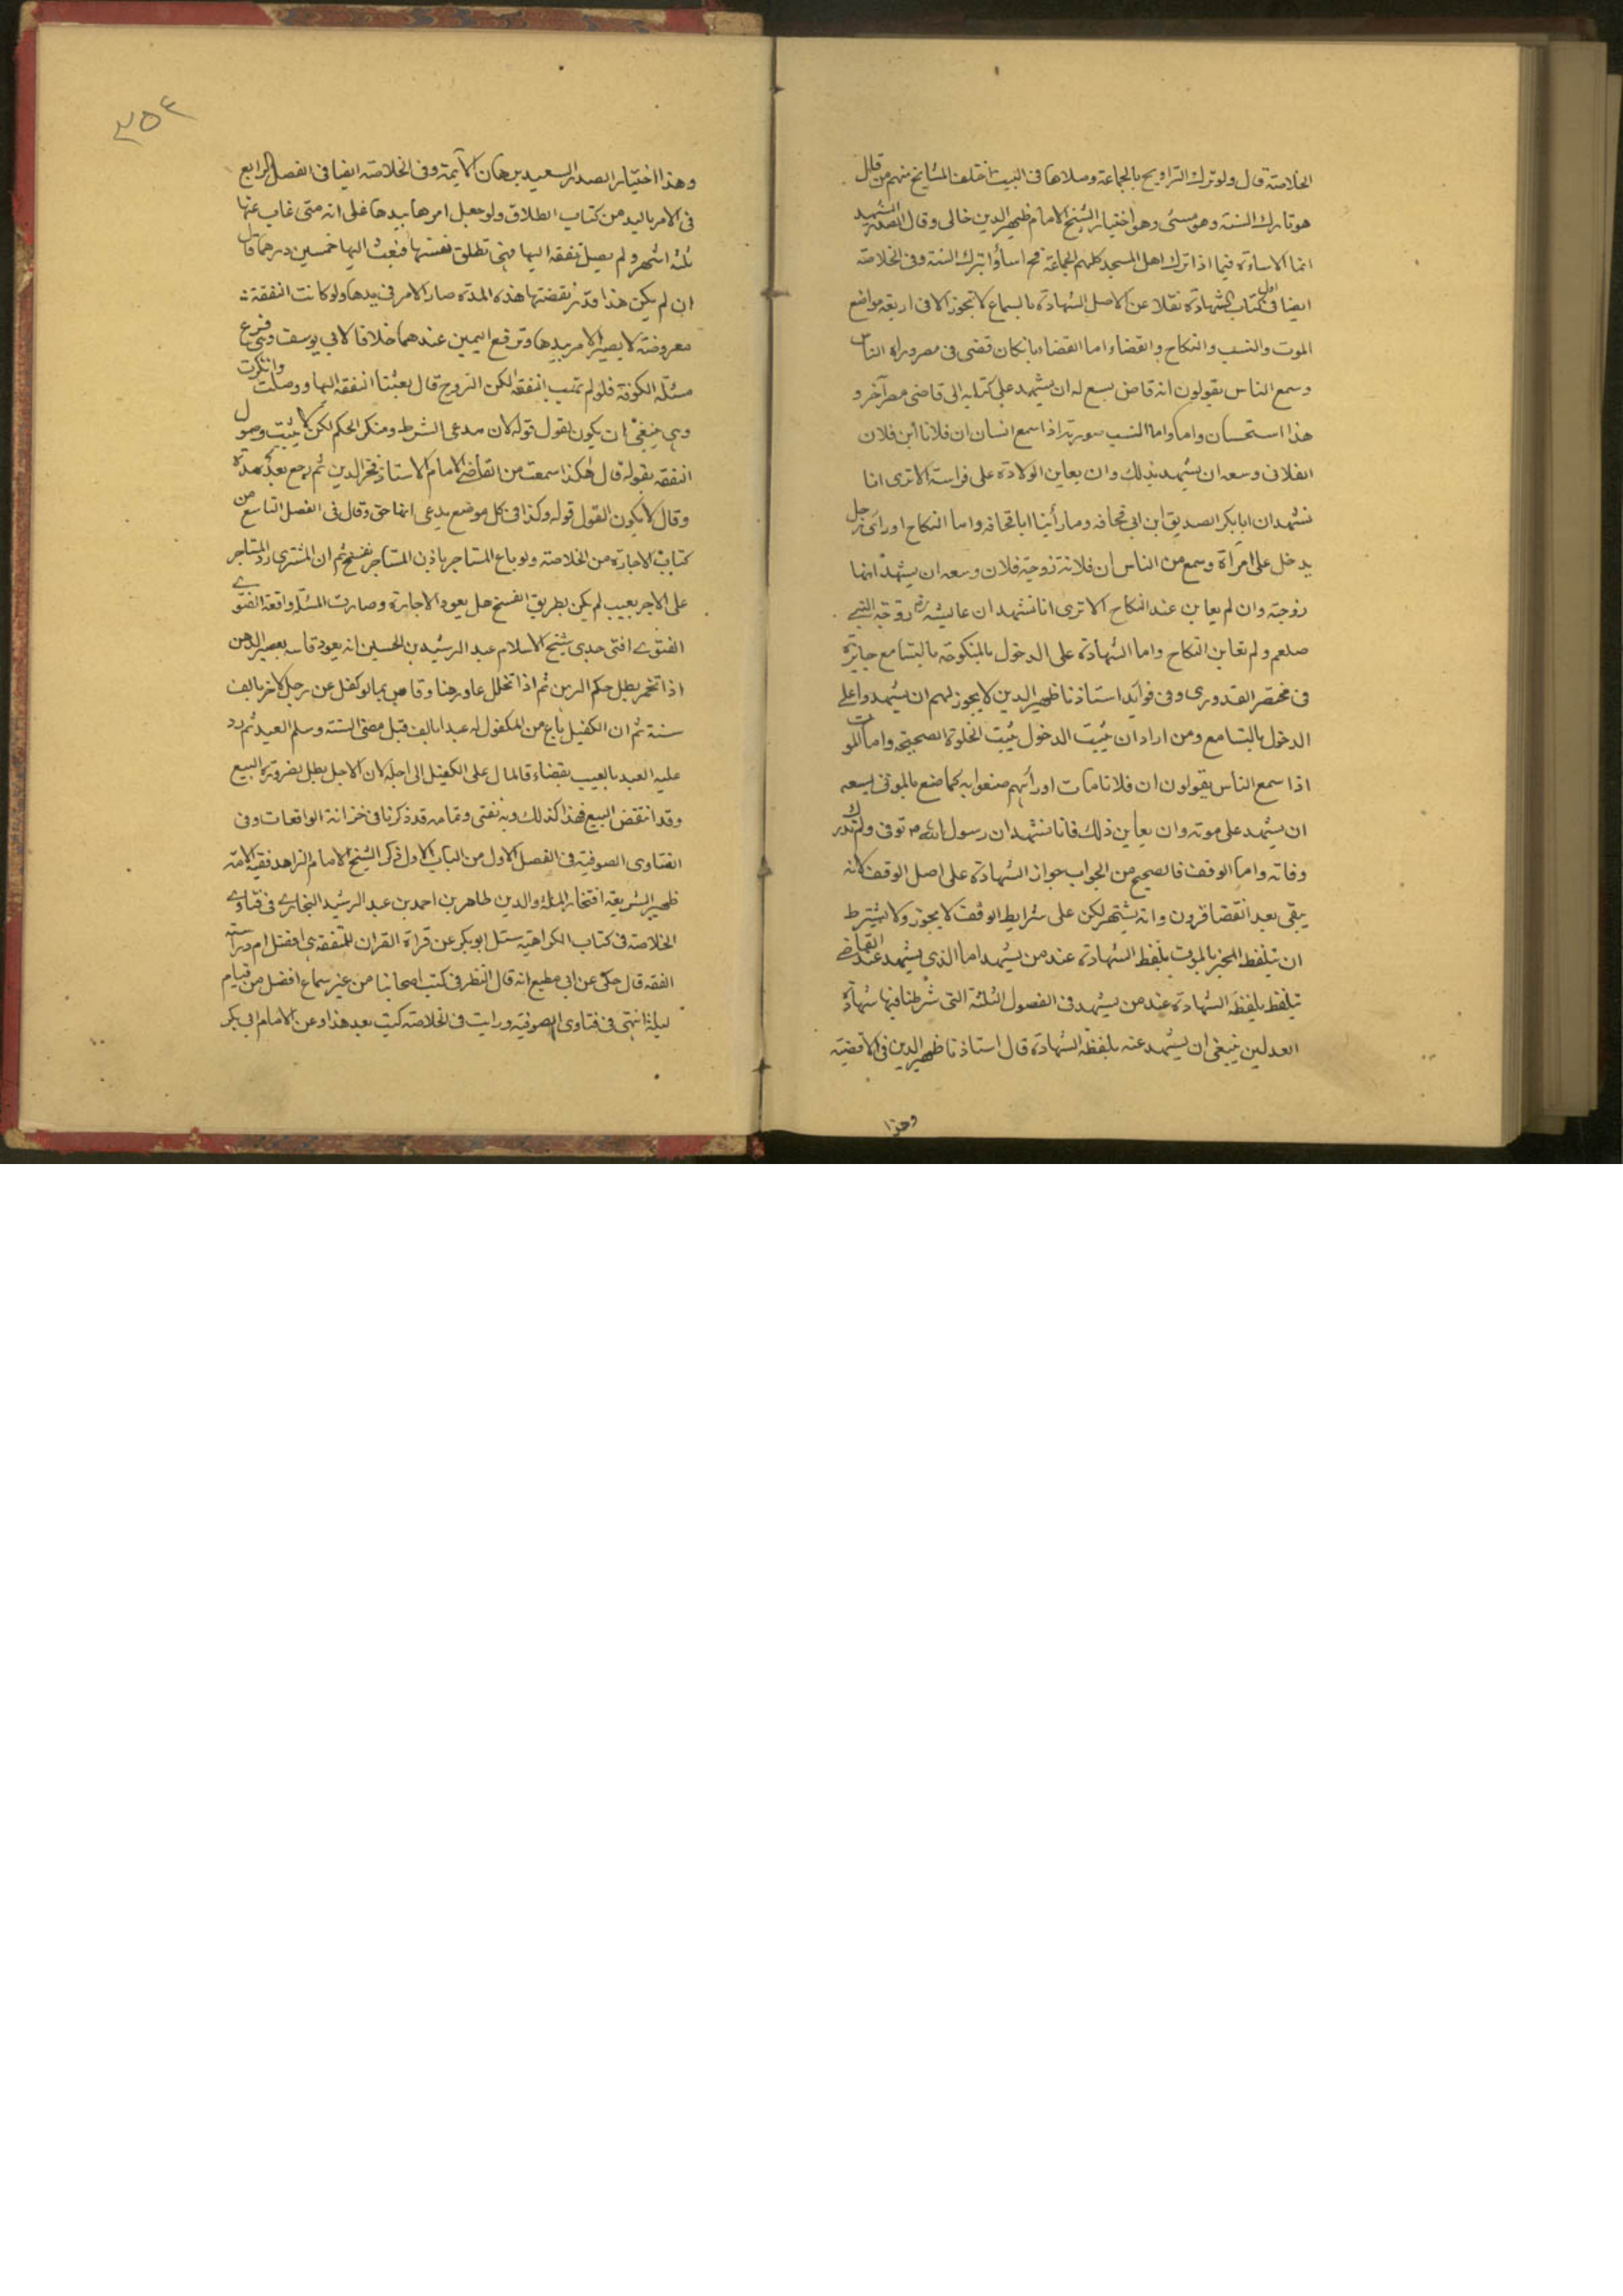 الخلاصة قال ولو ترك التراويح بالجماعة وصلاها فى البيت اختلف المشايخ منهم من قال
هو تارك السنة وهو مسئ وهو اختيار الشيخ الامام ظهير الدين خالى وقال الصدر الشهيد
انما الاساءة فيما اذا ترك اهل المسجد كلهم الجماعة فح اساؤا بترك السنة وفى الخلاصة
ايضا فى اول كتاب الشهادة نقلا عن الاصل الشهادة بالسماع لا تجوز الا فى اربعة مواضع
الموت والنسب والنكاح والقضاء اما القضاء بان كان قضى فى مصر وراه الناس
وسمع الناس يقولون انه قاض يسع له ان يشهد على كتابه الى قاضى مصر آخر و
هذا استحسان واما واما النسب صورته اذا سمع انسان ان فلانا ابن فلان
الفلانى وسعه ان يشهد بذلك وان يعاين الولادة على فراسته الا ترى انا
نشهد ان ابا بكر الصديق ابن ابى قحافه وما رأينا ابا قحافه واما النكاح اورأى رجل
يدخل على امرأة وسمع من الناس ان فلانة زوجة فلان وسعه ان يشهد انها
زوجته وان لم يعاين عند النكاح الا ترى انا نشهد ان عايشه رض زوجة النبى
صلعم ولم نعاين النكاح واما الشهادة على الدخول بالمنكوحة بالتسامع جايزة
فى مختصر القدورى وفى فوايد استاذنا ظهير الدين لا يجوز لهم ان يشهدوا على
الدخول بالتسامع ومن اراد ان يثبت الدخول يثبت الخلوة الصحيحة واما الموت
اذا سمع الناس يقولون ان فلانا مات اورآهم صنعوا به كما صنع بالموتى يسعه
ان يشهد على موته وان يعاين ذلك فانا نشهد ان رسول الله ص توفى ولم ندرك
وفاته واما الوقف فالصحيح من الجواب جواز الشهادة على اصل الوقف لانه
يبقى بعد انقضا قرون وانه يشتهر لكن على شرايط الوقف لا يجوز ولا يشترط
ان يتلفظ المخبر بالموت بلفظ الشهادة عند من يشهد اما الذى يشهد عند القاضى
يتلفظ بلفظه الشهادة عند من يشهد فى الفصول الثلثة التى شرطنا فيها شهادة
العدلين ينبغى ان يشهد عنه بلفظه الشهادة قال استاذنا ظهير الدين فى الاقضية
وهذا
٢٥٤
وهذا اختيار الصدر السعيد برهان الأيمة وفى الخلاصة ايضا فى الفصل الرابع
فى الامر باليد من كتاب الطلاق ولو جعل امرها بيدها على انه متى غاب عنها
ثلثة اشهر ولم يصل نفقة اليها فهى تطلق نفسها فبعث اليها خمسين درهما قال
ان لم يكن هذا قدر نفقتها هذه المدة صار الامر فى يدها ولو كانت النفقة
معروضة لا يصير الامر بيدها وترفع اليمين عندهما خلافا لابى يوسف وهى فرع
مسئلة الكوفة فلو لم تغيب النفقة لكن الزوج قال بعثنا النفقة اليها ووصلت وانكرت
وهى ينبغى ان يكون القول قوله لان مدعى الشرط ومنكر الحكم لكن لا يثبت وصول
النفقه بقوله قال هكذا سمعت من القاضى الامام الاستاذ فخر الدين ثم رجع بعد مدة
وقال لا يكون القول قوله وكذا فى كل موضع يدعى ايفا حق وقال فى الفصل التاسع من
كتاب الاجارة من الخلاصة ولو باع المستاجر باذن المستاجر تفسخ ثم ان المشترى رد المستاجر
على الاجر بعيب لم يكن بطريق الفسخ هل يعود الاجارة وصارت المسئلة واقعة الفتوى
الفتوى افتى جدى شيخ الاسلام عبد الرشيد بن الحسين انه يعود قاسه بعصير الدهن
اذا تخمر بطل حكم الرهن ثم اذا تخلل عاد رهنا وقاس بما لو كفل عن رجل لاخر بالف
سنة ثم ان الكفيل باع من المكفول له عبدا بالف قبل مضى السنة وسلم العبد ثم رد
عليه العبد بالعيب بقضاء فالمال على الكفيل الى اجله لان الاجل بطل بضرورة البيع
وقد انتقض البيع فهذا كذلك وبه نفتى وتمامه قد ذكرنا فى خزانة الواقعات وفى
الفتاوى الصوفية فى الفصل الاول من الباب الاول ذكر الشيخ الامام الزاهد فقيه الامة
ظهير الشريعة افتخار الملة والدين طاهر بن احمد بن عبد الرشيد البخارى فى فتاوى
الخلاصة فى كتاب الكراهية سئل ابو بكر عن قراة القران للمتفقه اهى افضل ام دراسة
الفقه قال حكى عن ابى مطيع انه قال النظر فى كتب اصحابنا من غير سماع افضل من قيام
ليلة انتهى فى فتاوى الصوفية ورايت فى الخلاصة كيت بعد هذا وعن الامام ابى بكر